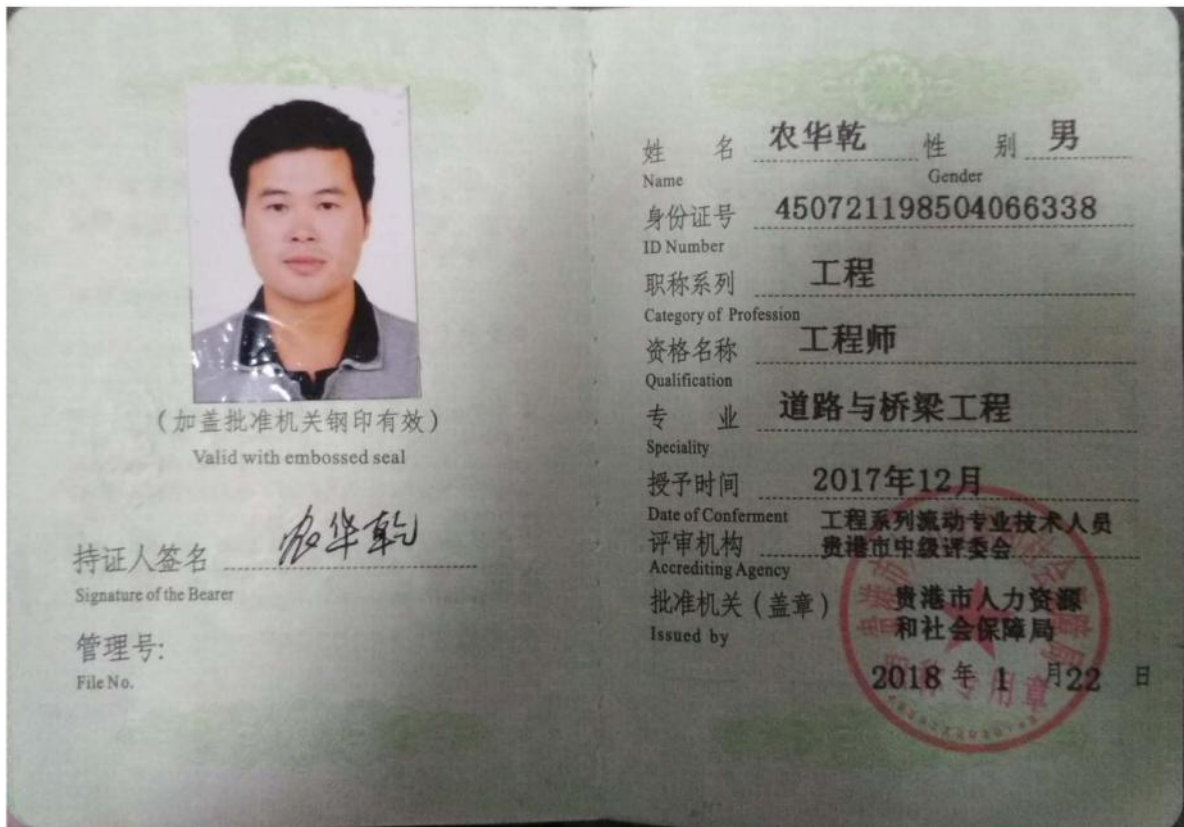 （加盖批准机关钢印有效）
Valid with embossed seal
持证人签名 农华乾
Signature of the Bearer
管理号:
File No.
姓 名 农华乾 性 别 男
Name Gender
身份证号 450721198504066338
ID Number
职称系列 工程
Category of Profession
资格名称 工程师
Qualification
专 业 道路与桥梁工程
Speciality
授予时间 2017年12月
Date of Conferment
工程系列流动专业技术人员
评审机构 贵港市中级评委会
Accrediting Agency
批准机关（盖章） 贵港市人力资源
Issued by 和社会保障局
2018 年 1 月 22 日
职称专用章